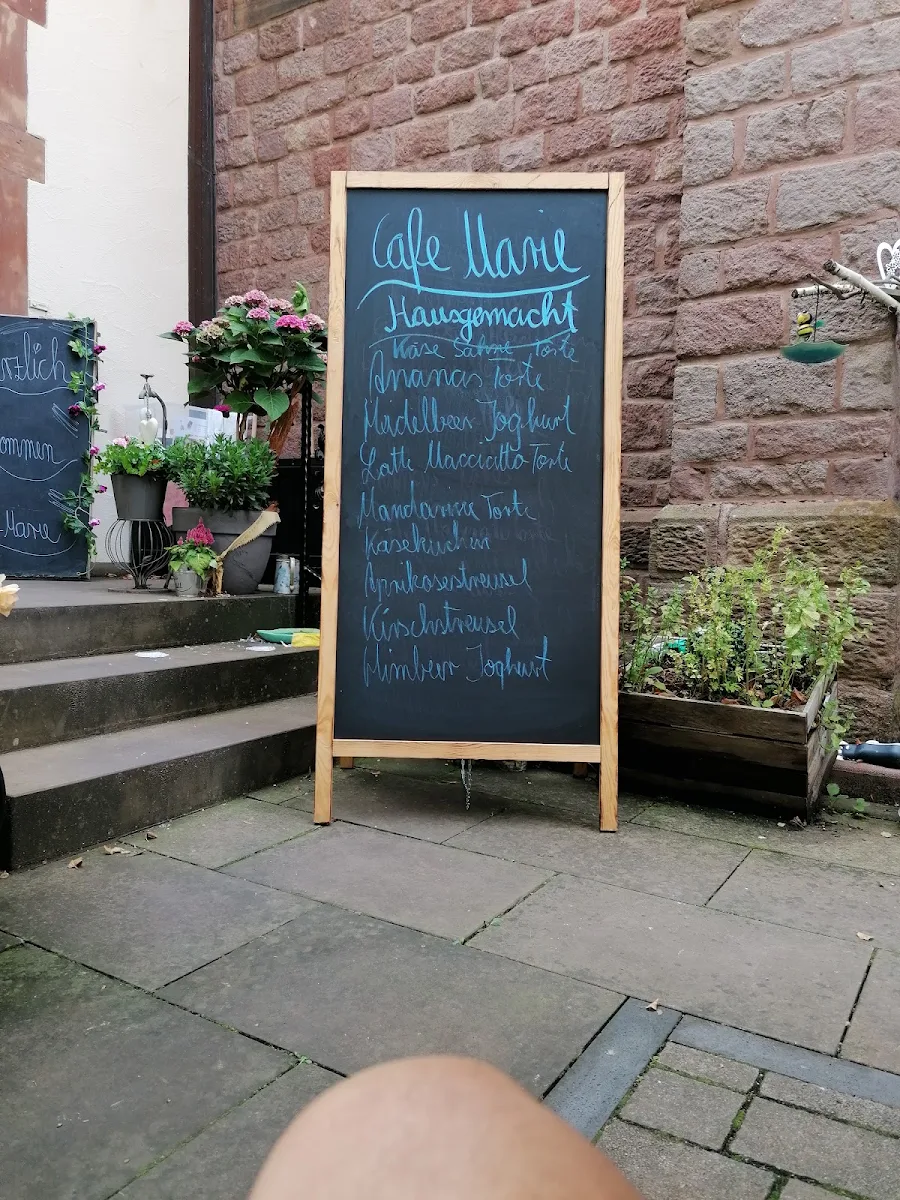 Cafe Marie
Hausgemacht
Käse Sahne Torte
Ananas Torte
Heidelbeer Joghurt
Latte Macciatto Torte
Mandarine Torte
Käsekuchen
Aprikosestreusel
Kirschstreusel
Himbeer Joghurt
rzlich
ommen
Marie